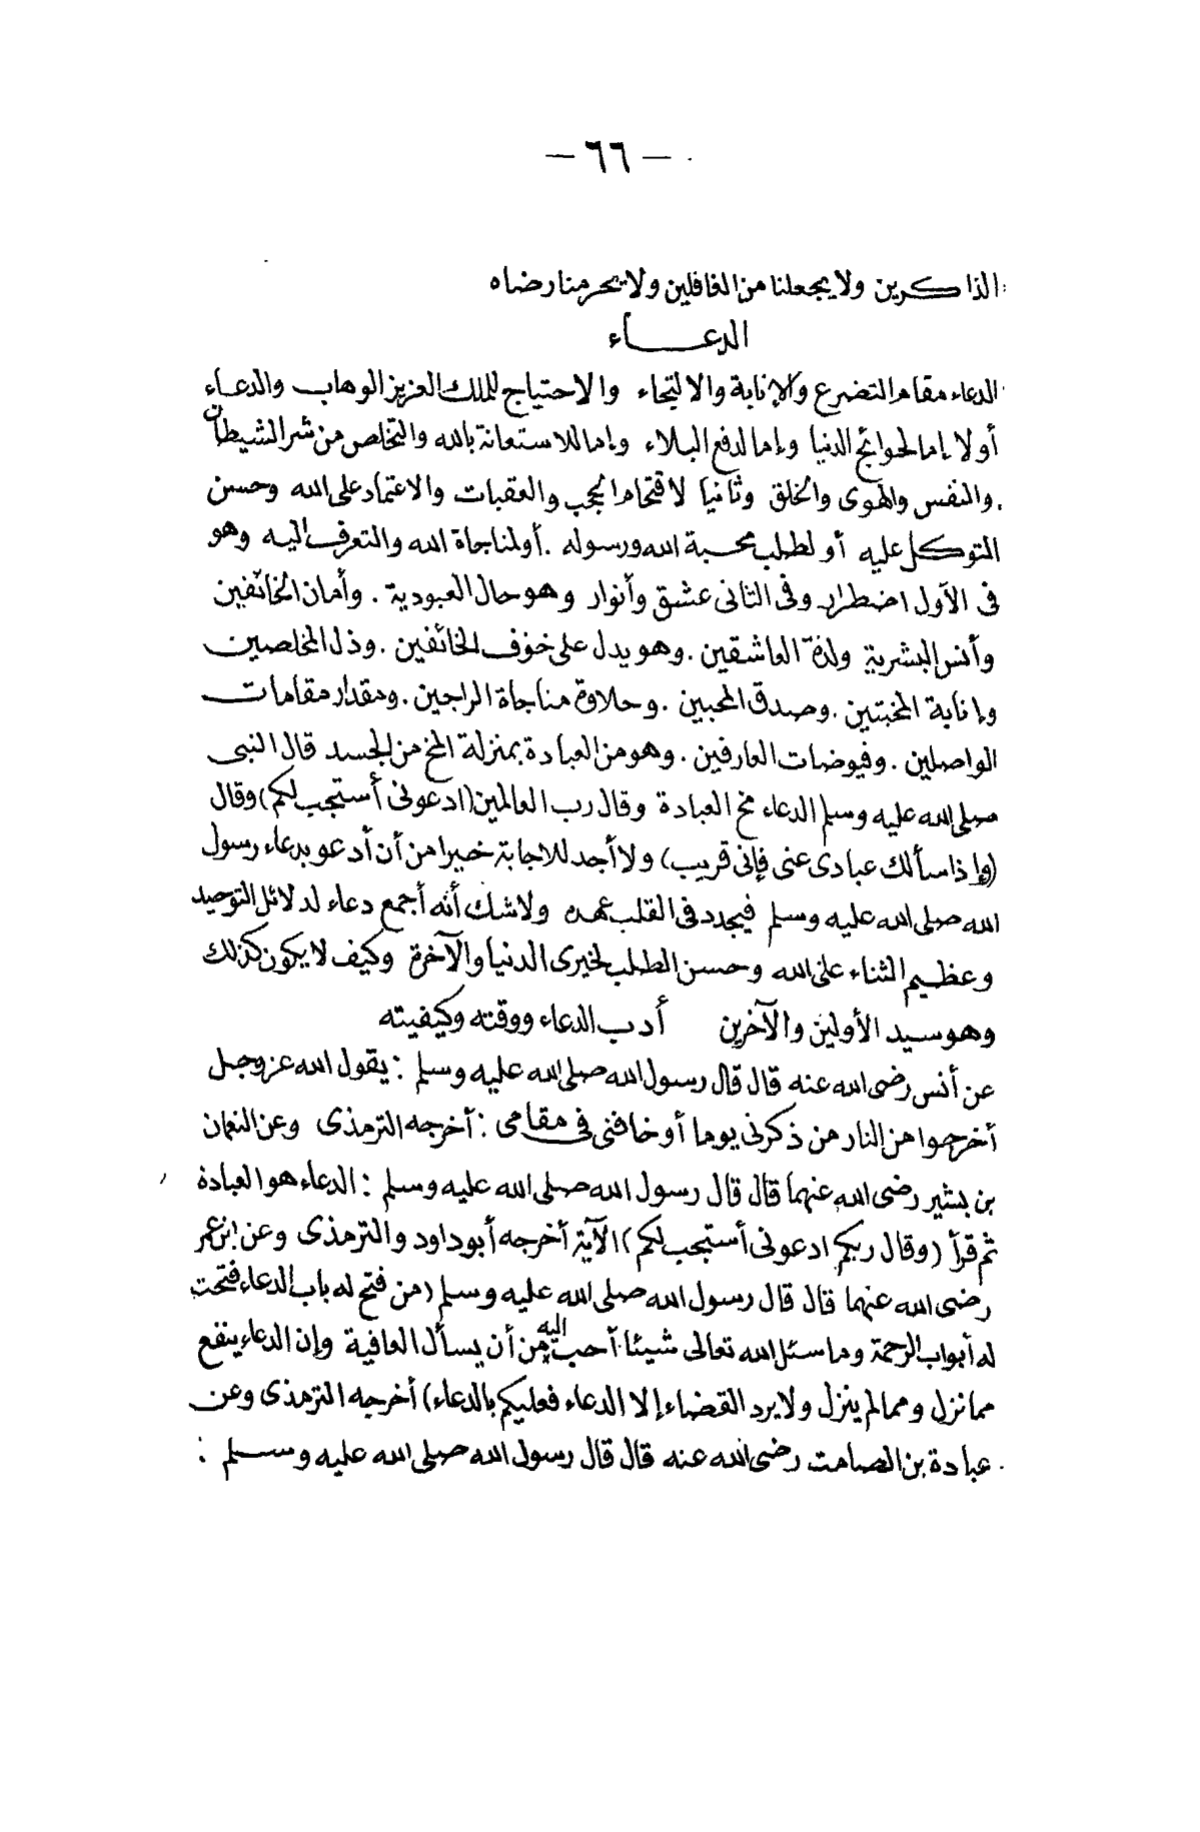 — ٦٦ —
الذاكرين ولا يجعلنا من الغافلين ولا يحرمنا رضاه
الدعاء
الدعاء مقام التضرع والإنابة والالتجاء والاحتياج للملك العزيز الوهاب والدعاء
أولا إما لحوائج الدنيا وإما لدفع البلاء وإما للاستعانة بالله والتخلص من شر الشيطان
والنفس والهوى والخلق وثانيا لاقتحام الحجب والعقبات والاعتماد على الله وحسن
التوكل عليه أو لطلب محبة الله ورسوله . أو لمناجاة الله والتعرف اليه وهو
فى الأول اضطرار وفى الثانى عشق وأنوار وهو حال العبودية . وأمان الخائفين
وأنس البشرية ولذة العاشقين . وهو يدل على خوف الخائفين . وذل المخلصين
وإنابة المخبتين . وصدق المحبين . وحلاوة مناجاة الراجين . ومقدار مقامات
الواصلين . وفيوضات العارفين . وهو من العبادة بمنزلة المخ من الجسد قال النبى
صلى الله عليه وسلم الدعاء مخ العبادة وقال رب العالمين (ادعونى أستجب لكم) وقال
(وإذا سألك عبادى عنى فإنى قريب) ولا أجد للاجابة خيرا من أن أدعو بدعاء رسول
الله صلى الله عليه وسلم فيجدد فى القلب عهده ولا شك أنه أجمع دعاء لدلائل التوحيد
وعظيم الثناء على الله وحسن الطلب لخيرى الدنيا والآخرة وكيف لا يكون كذلك
وهو سيد الأولين والآخرين أدب الدعاء ووقته وكيفيته
عن أنس رضى الله عنه قال قال رسول الله صلى الله عليه وسلم : يقول الله عز وجل
أخرجوا من النار من ذكرنى يوما أو خافنى فى مقامى : أخرجه الترمذى وعن النعمان
بن بشير رضى الله عنهما قال قال رسول الله صلى الله عليه وسلم : الدعاء هو العبادة
ثم قرأ (وقال ربكم ادعونى أستجب لكم) الآية أخرجه أبو داود والترمذى وعن ابن عمر
رضى الله عنهما قال قال رسول الله صلى الله عليه وسلم (من فتح له باب الدعاء فتحت
له أبواب الرحمة وما سئل الله تعالى شيئا أحب اليه من أن يسأل العافية وإن الدعاء ينفع
مما نزل ومما لم ينزل ولا يرد القضاء إلا الدعاء فعليكم بالدعاء) أخرجه الترمذى وعن
عبادة بن الصامت رضى الله عنه قال قال رسول الله صلى الله عليه وسلم :